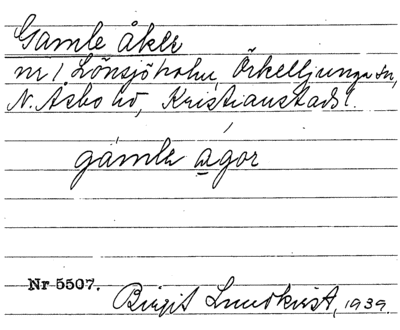 Gamle åker
nr 1. Lönsjöholm, Örkelljunga sn,
N. Åsbo hd, Kristianstads l.
gámle ágor
Nr 5507.
Birgit Lundkvist, 1939.